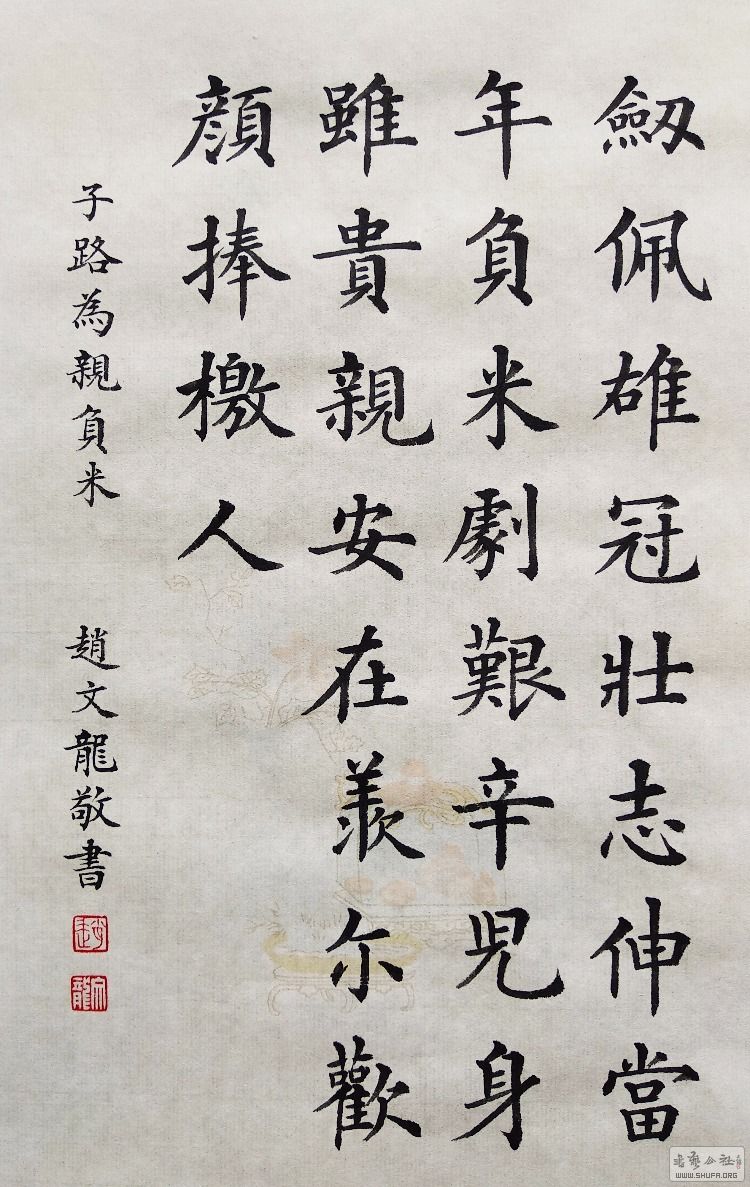 劔佩雄冠壯志伸當
年負米劇艱辛児身
雖貴親安在羨尓歡
顔捧檄人
子路為親負米
趙文龍敬書
WWW.SHUFA.ORG